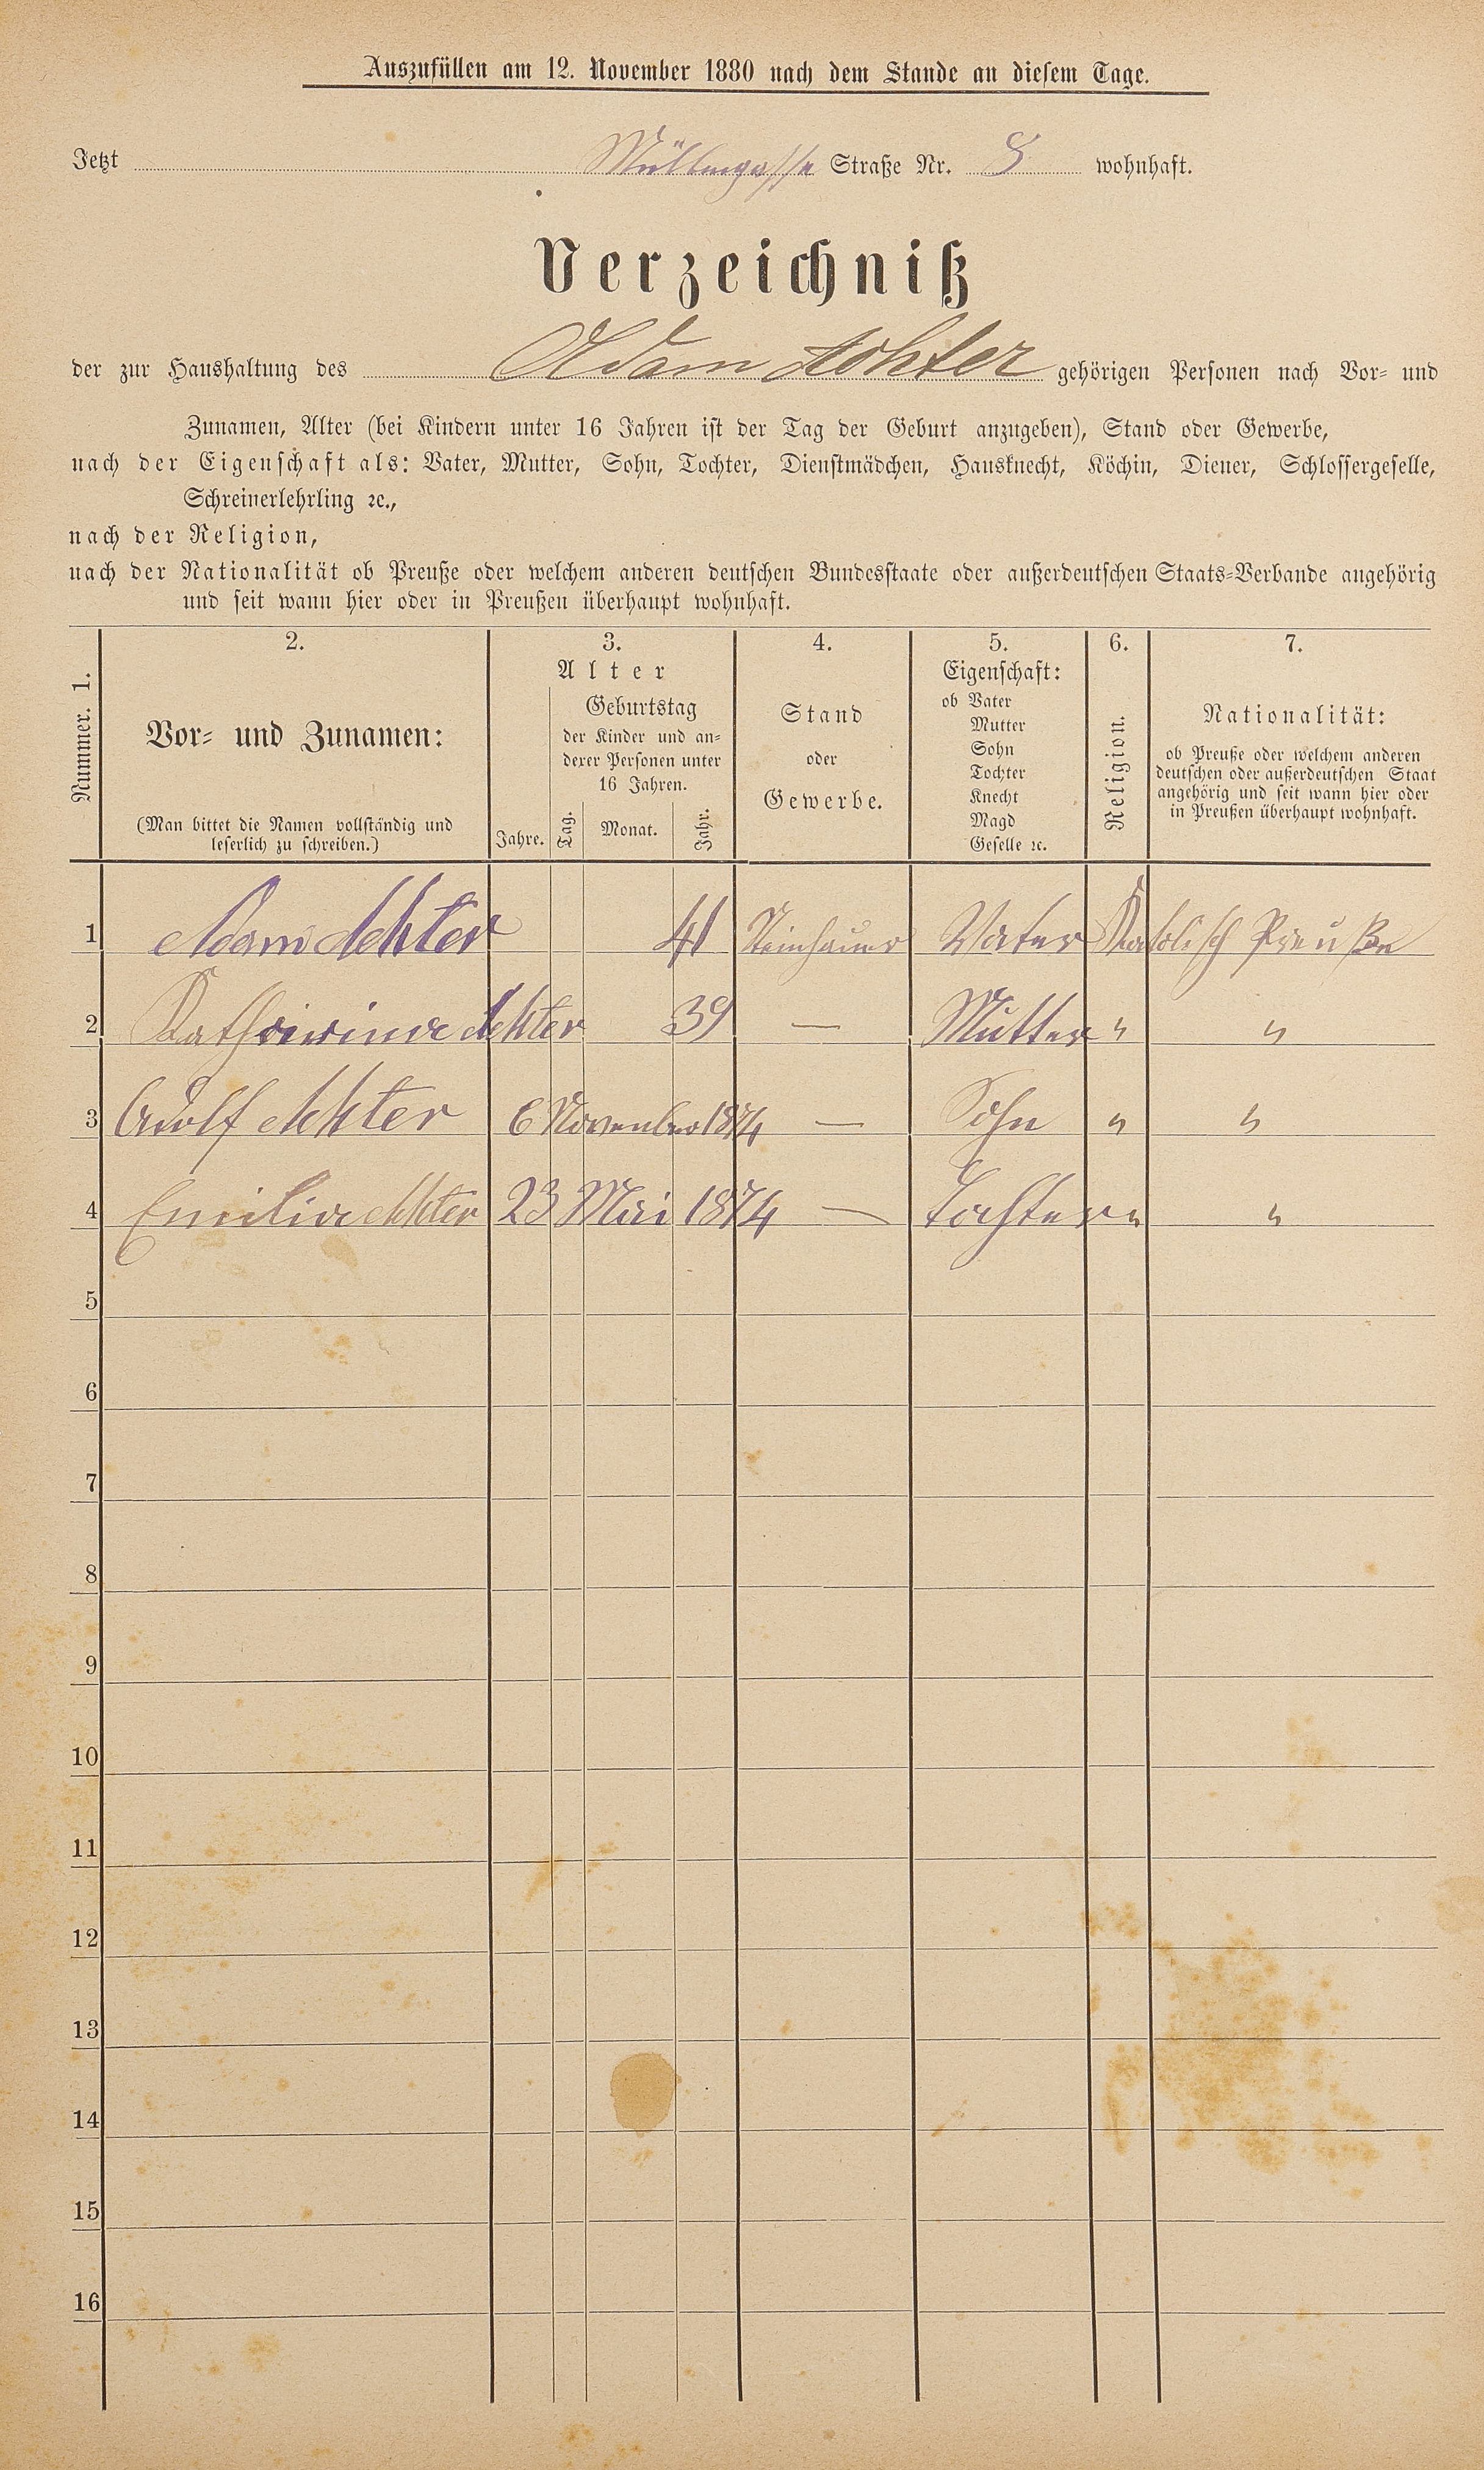 Auszufüllen am 12. November 1880 nach dem Stande an diesem Tage.
Jetzt Müllergasse Straße Nr. 8 wohnhaft.
Verzeichniß
der zur Haushaltung des Adam Achter gehörigen Personen nach Vor- und
Zunamen, Alter (bei Kindern unter 16 Jahren ist der Tag der Geburt anzugeben), Stand oder Gewerbe,
nach der Eigenschaft als: Vater, Mutter, Sohn, Tochter, Dienstmädchen, Hausknecht, Köchin, Diener, Schlossergeselle,
Schreinerlehrling ꝛc.,
nach der Religion,
nach der Nationalität ob Preuße oder welchem anderen deutschen Bundesstaate oder außerdeutschen Staats-Verbande angehörig
und seit wann hier oder in Preußen überhaupt wohnhaft.
Nummer. 1.
2.
Vor- und Zunamen:
(Man bittet die Namen vollständig und
leserlich zu schreiben.)
3.
Alter
Jahre.
Geburtstag
der Kinder und an-
derer Personen unter
16 Jahren.
Tag.
Monat.
Jahr.
4.
Stand
oder
Gewerbe.
5.
Eigenschaft:
ob Vater
Mutter
Sohn
Tochter
Knecht
Magd
Geselle ꝛc.
6.
Religion.
7.
Nationalität:
ob Preuße oder welchem anderen
deutschen oder außerdeutschen Staat
angehörig und seit wann hier oder
in Preußen überhaupt wohnhaft.
1 Adam Achter 41 Steinhauer Vater Katolisch Preuße
2 Katharina Achter 39 — Mutter " "
3 Adolf Achter 6 November 1874 — Sohn " "
4 Emilia Achter 23 Mai 1874 — Tochter " "
5
6
7
8
9
10
11
12
13
14
15
16